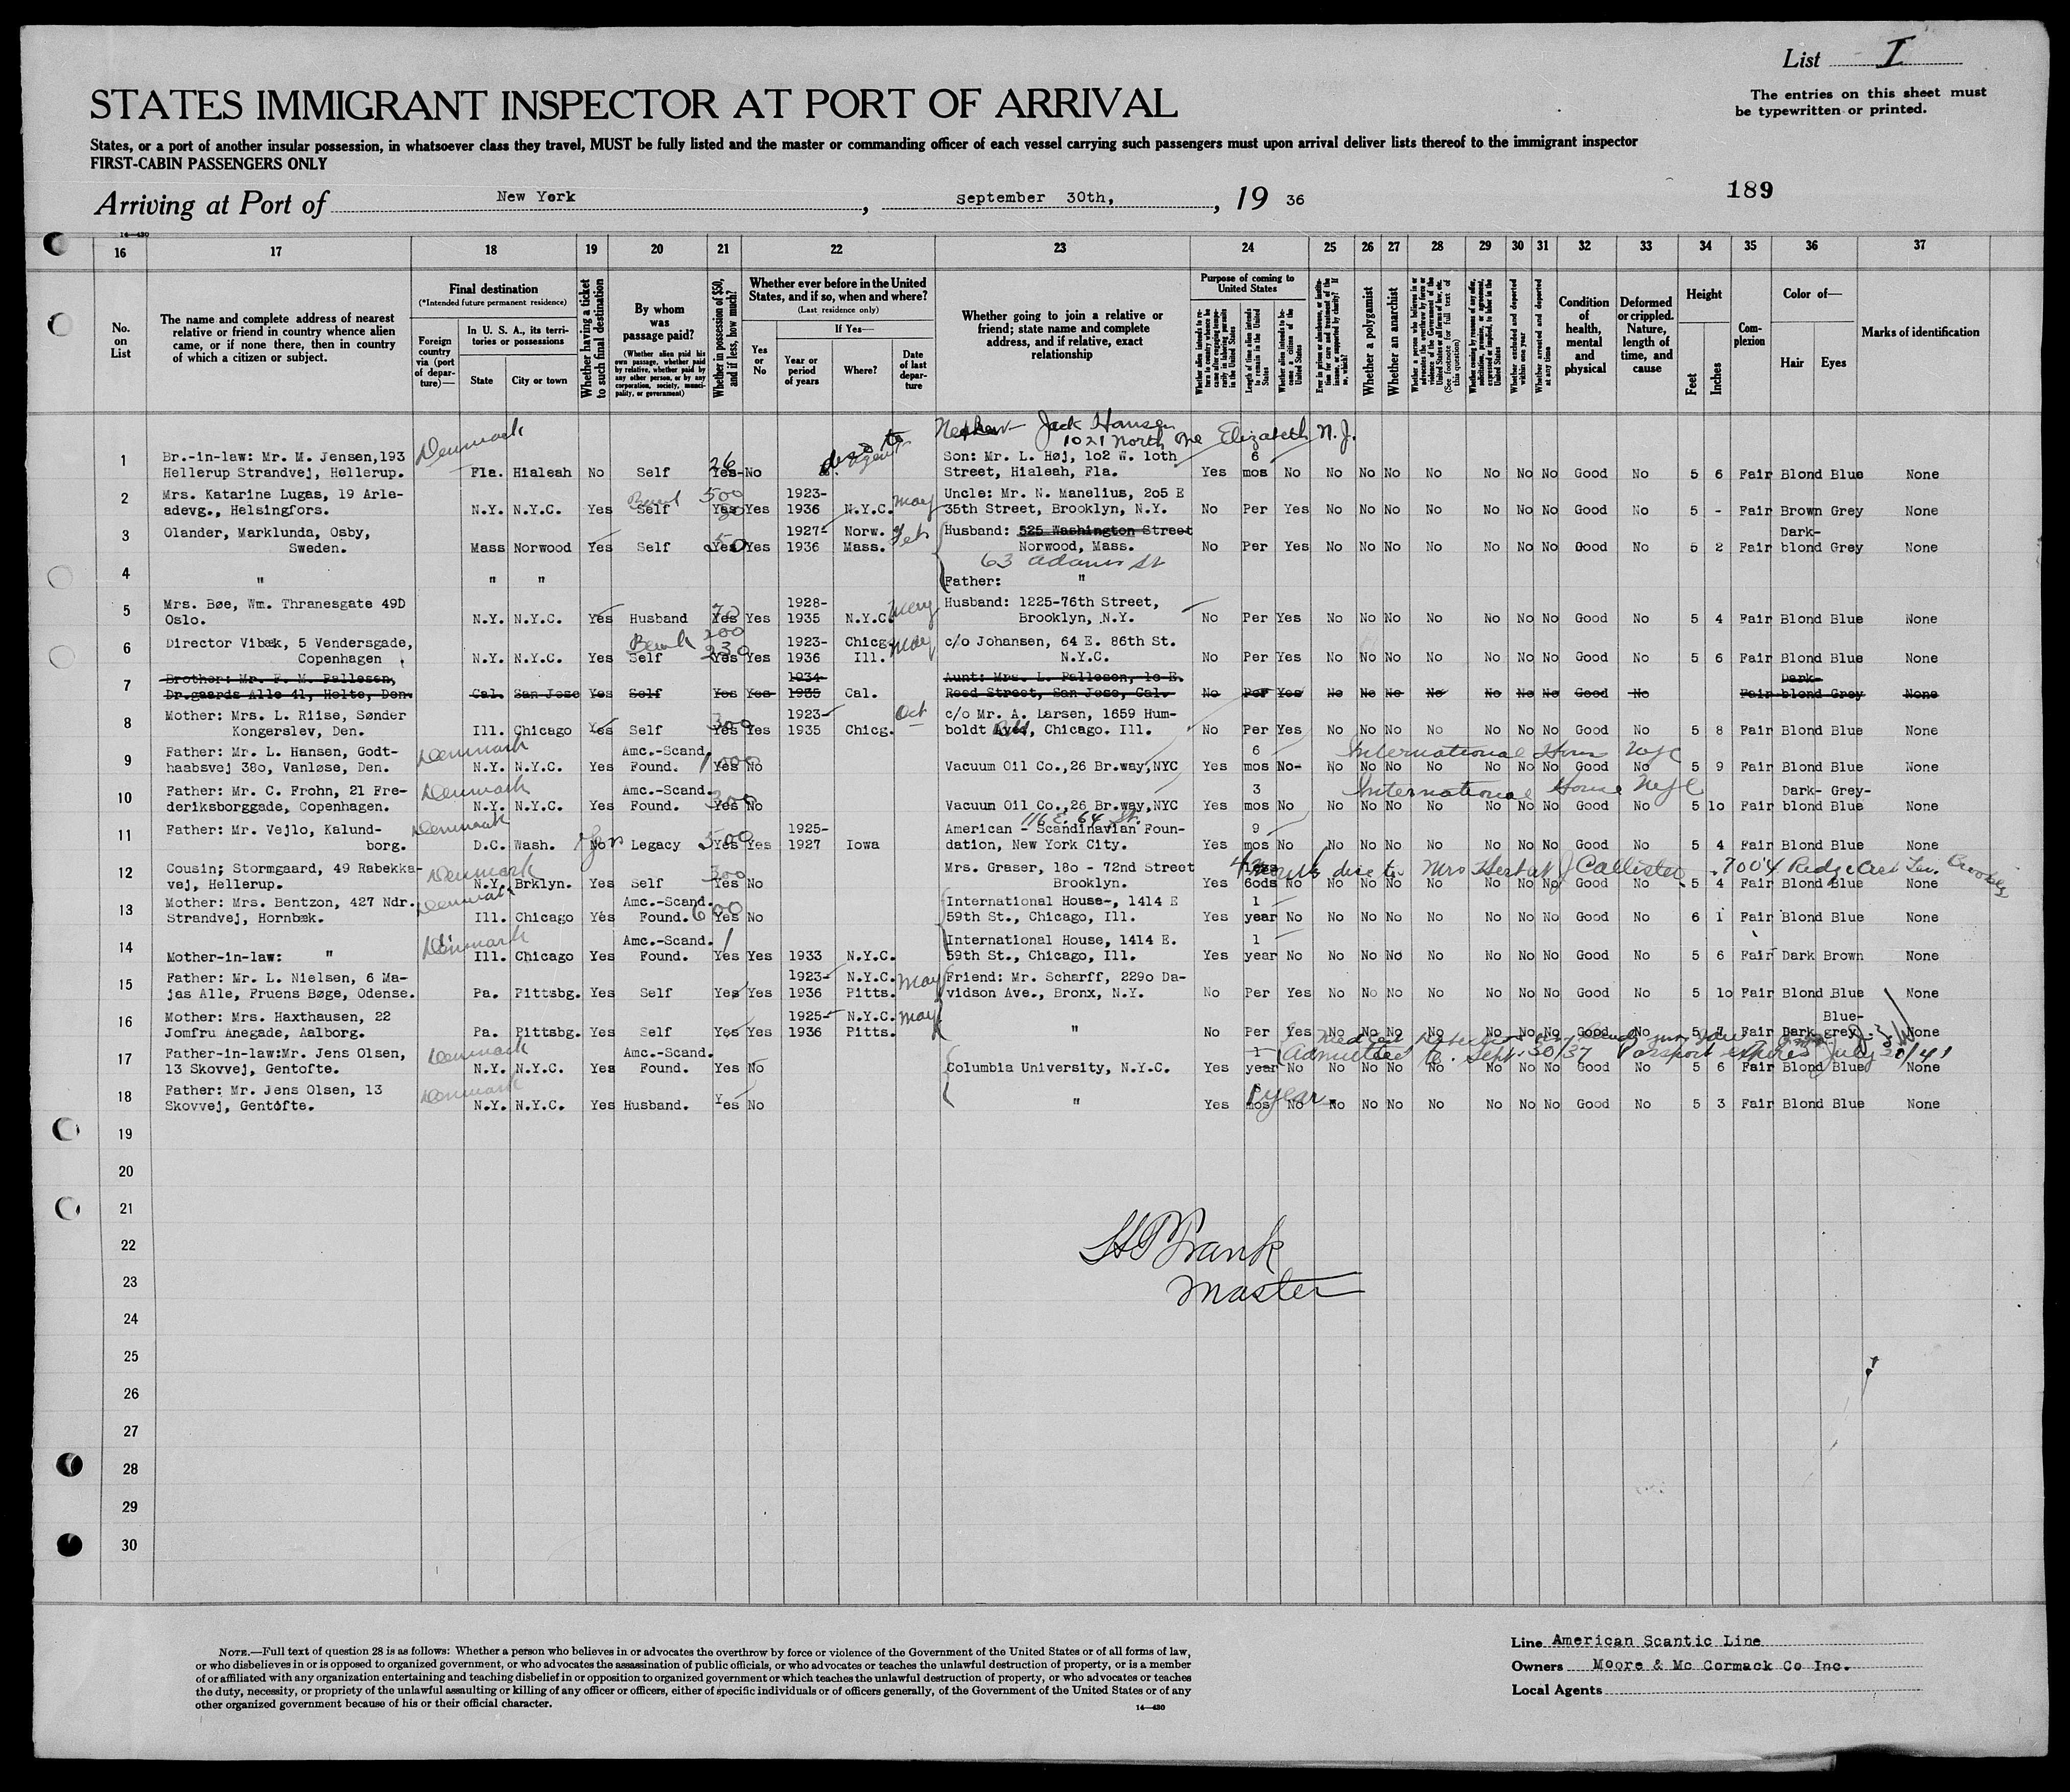 List I
The entries on this sheet must
be typewritten or printed.
STATES IMMIGRANT INSPECTOR AT PORT OF ARRIVAL
States, or a port of another insular possession, in whatsoever class they travel, MUST be fully listed and the master or commanding officer of each vessel carrying such passengers must upon arrival deliver lists thereof to the immigrant inspector
FIRST-CABIN PASSENGERS ONLY
Arriving at Port of New York, September 30th, 19 36
189
14—430
16 17 18 19 20 21 22 23 24 25 26 27 28 29 30 31 32 33 34 35 36 37
No. on List
The name and complete address of nearest relative or friend in country whence alien came, or if none there, then in country of which a citizen or subject.
Final destination
(*Intended future permanent residence)
Foreign country via (port of departure)—
In U. S. A., its territories or possessions
State
City or town
Whether having a ticket to such final destination
By whom was passage paid?
(Whether alien paid his own passage, whether paid by relative, whether paid by any other person, or by any corporation, society, municipality, or government)
Whether in possession of $50, and if less, how much?
Whether ever before in the United States, and if so, when and where?
(Last residence only)
Yes or No
If Yes—
Year or period of years
Where?
Date of last departure
Whether going to join a relative or friend; state name and complete address, and if relative, exact relationship
Purpose of coming to United States
Length of time alien intends to remain in the United States
Whether alien intends to become a citizen of the United States
Whether a polygamist
Whether an anarchist
Whether excluded and deported within one year
Whether arrested and deported at any time
Condition of health, mental and physical
Deformed or crippled. Nature, length of time, and cause
Height
Feet
Inches
Complexion
Color of—
Hair
Eyes
Marks of identification
Nephew Jack Hansen
1021 North Ave Elizabeth N.J.
1 Br.-in-law: Mr. M. Jensen,193 Denmark Son: Mr. L. Høj, 1o2 W. 1oth 6
Hellerup Strandvej, Hellerup. Fla. Hialeah No Self 26 Yes No Street, Hialeah, Fla. Yes mos No No No No No No No No Good No 5 6 Fair Blond Blue None
2 Mrs. Katarine Lugas, 19 Arle- 500 1923- May Uncle: Mr. N. Manelius, 2o5 E
adevg., Helsingfors. N.Y. N.Y.C. Yes Self Yes Yes 1936 N.Y.C. 35th Street, Brooklyn, N.Y. No Per Yes No No No No No No No Good No 5 - Fair Brown Grey None
3 Olander, Marklunda, Osby, 1927- Norw. Feb Husband: 525 Washington Street Dark-
Sweden. Mass Norwood Yes Self 50 Yes Yes 1936 Mass. Norwood, Mass. No Per Yes No No No No No No No Good No 5 2 Fair blond Grey None
63 Adams St
4 " " " Father: "
5 Mrs. Bøe, Wm. Thranesgate 49D 1928- Husband: 1225-76th Street,
Oslo. N.Y. N.Y.C. Yes Husband 70 Yes Yes 1935 N.Y.C. Brooklyn, N.Y. No Per Yes No No No No No No No Good No 5 4 Fair Blond Blue None
6 Director Vibæk, 5 Vendersgade, 200 1923- Chicg. May c/o Johansen, 64 E. 86th St.
Copenhagen. N.Y. N.Y.C. Yes Self 230 Yes Yes 1936 Ill. N.Y.C. No Per Yes No No No No No No No Good No 5 6 Fair Blond Blue None
7 Brother: Mr. F. M. Pallesen, 1934- Aunt: Mrs. L. Pallesen, 1o E. Dark-
Dr.gaards Alle 41, Holte, Den. Cal. San Jose Yes Self Yes Yes 1935 Cal. Reed Street, San Jose, Cal. No Per Yes No No No No No No No Good No Fair blond Grey None
8 Mother: Mrs. L. Riise, Sønder 1923- Oct c/o Mr. A. Larsen, 1659 Hum-
Kongerslev, Den. Ill. Chicago Yes Self 300 Yes Yes 1935 Chicg. boldt Blvd, Chicago. Ill. No Per Yes No No No No No No No Good No 5 8 Fair Blond Blue None
9 Father: Mr. L. Hansen, Godt- Denmark Amc.-Scand. 6 International House NYC
haabsvej 38o, Vanløse, Den. N.Y. N.Y.C. Yes Found. 1000 Yes No Vacuum Oil Co.,26 Br.way,NYC Yes mos No- No No No No No No No Good No 5 9 Fair Blond Blue None
10 Father: Mr. C. Frohn, 21 Fre- Denmark Amc.-Scand. 3 International House NYC Dark- Grey-
deriksborggade, Copenhagen. N.Y. N.Y.C. Yes Found. 300 Yes No Vacuum Oil Co.,26 Br.way,NYC Yes mos No No No No No No No No Good No 5 1o Fair blond Blue None
116 E. 64 St.
11 Father: Mr. Vejlo, Kalund- Denmark 1925- American - Scandinavian Foun- 9
borg. D.C. Wash. No Yes Legacy 500 Yes Yes 1927 Iowa dation, New York City. Yes mos No No No No No No No No Good No 5 4 Fair Blond Blue None
12 Cousin; Stormgaard, 49 Rabekka- Denmark 300 Mrs. Graser, 18o - 72nd Street
vej, Hellerup. N.Y. Brklyn. Yes Self Yes No Brooklyn. Yes 6ods No No No No No No No No Good No 5 4 Fair Blond Blue None
13 Mother: Mrs. Bentzon, 427 Ndr. Denmark Amc.-Scand. International House-, 1414 E 1
Strandvej, Hornbæk. Ill. Chicago Yes Found. 600 Yes No 59th St., Chicago, Ill. Yes year No No No No No No No No Good No 6 1 Fair Blond Blue None
14 Denmark Amc.-Scand. International House, 1414 E. 1
Mother-in-law: " Ill. Chicago Yes Found. Yes Yes 1933 N.Y.C. 59th St., Chicago, Ill. Yes year No No No No No No No No Good No 5 6 Fair Dark Brown None
15 Father: Mr. L. Nielsen, 6 Ma- 1923- N.Y.C. May Friend: Mr. Scharff, 229o Da-
jas Alle, Fruens Bøge, Odense. Pa. Pittsbg. Yes Self Yes Yes 1936 Pitts. vidson Ave., Bronx, N.Y. No Per Yes No No No No No No No Good No 5 1o Fair Blond Blue None
16 Mother: Mrs. Haxthausen, 22 1925- N.Y.C. May Blue-
Jomfru Anegade, Aalborg. Pa. Pittsbg. Yes Self Yes Yes 1936 Pitts. " No Per Yes No No No No No No No Good No 5 7 Fair Dark grey None
17 Father-in-law:Mr. Jens Olsen, Denmark Amc.-Scand. 1 Admitted to Sept. 30/37 Passport expires July 20/41
13 Skovvej, Gentofte. N.Y. N.Y.C. Yes Found. Yes No Columbia University, N.Y.C. Yes year No No No No No No No No Good No 5 6 Fair Blond Blue None
18 Father: Mr. Jens Olsen, 13 Denmark 1 year
Skovvej, Gentofte. N.Y. N.Y.C. Yes Husband. Yes No " Yes mos No No No No No No No No Good No 5 3 Fair Blond Blue None
19
20
21
22
23
24
25
26
27
28
29
30
Frank
Master
NOTE.—Full text of question 28 is as follows: Whether a person who believes in or advocates the overthrow by force or violence of the Government of the United States or of all forms of law,
or who disbelieves in or is opposed to organized government, or who advocates the assassination of public officials, or who advocates or teaches the unlawful destruction of property, or is a member
of or affiliated with any organization entertaining and teaching disbelief in or opposition to organized government or which teaches the unlawful destruction of property, or who advocates or teaches
the duty, necessity, or propriety of the unlawful assaulting or killing of any officer or officers, either of specific individuals or of officers generally, of the Government of the United States or of any
other organized government because of his or their official character.
14—430
Line American Scantic Line
Owners Moore & Mc Cormack Co Inc.
Local Agents